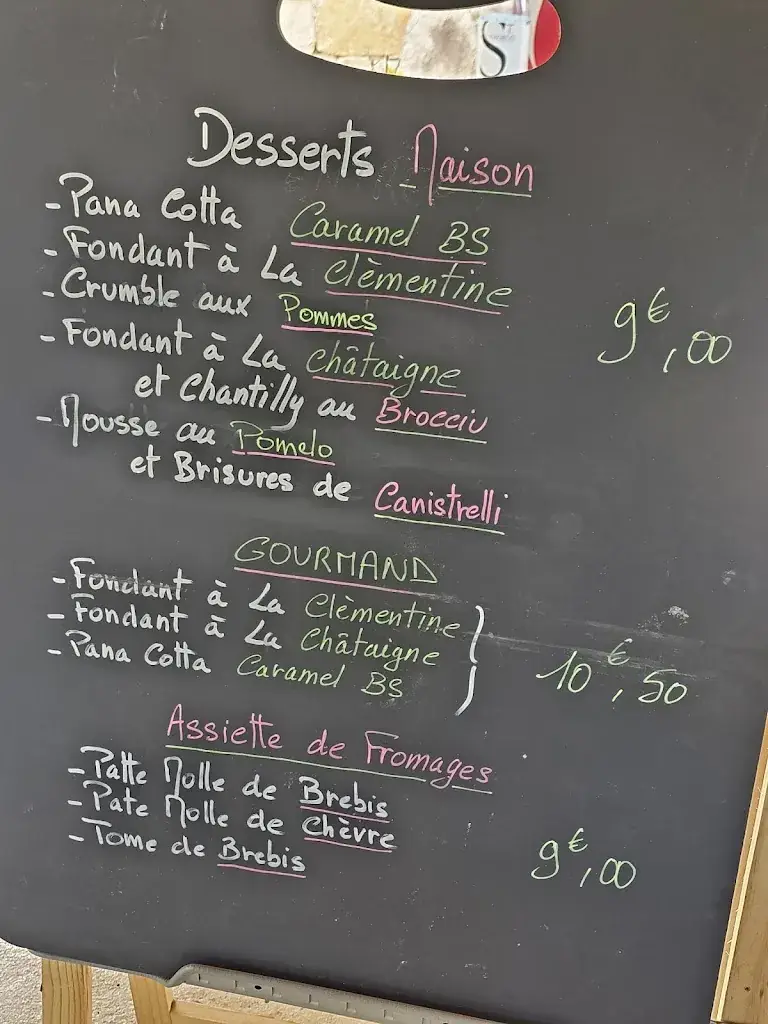 Desserts Maison
- Pana Cotta Caramel BS
- Fondant à La Clèmentine
- Crumble aux Pommes
9€,00
- Fondant à La Châtaigne
et Chantilly au Brocciu
- Mousse au Pomelo
et Brisures de Canistrelli
GOURMAND
- Fondant à La Clèmentine
- Fondant à La Châtaigne
- Pana Cotta Caramel BS
10€,50
Assiette de Fromages
- Patte Molle de Brebis
- Pate Molle de Chèvre
- Tome de Brebis
9€,00